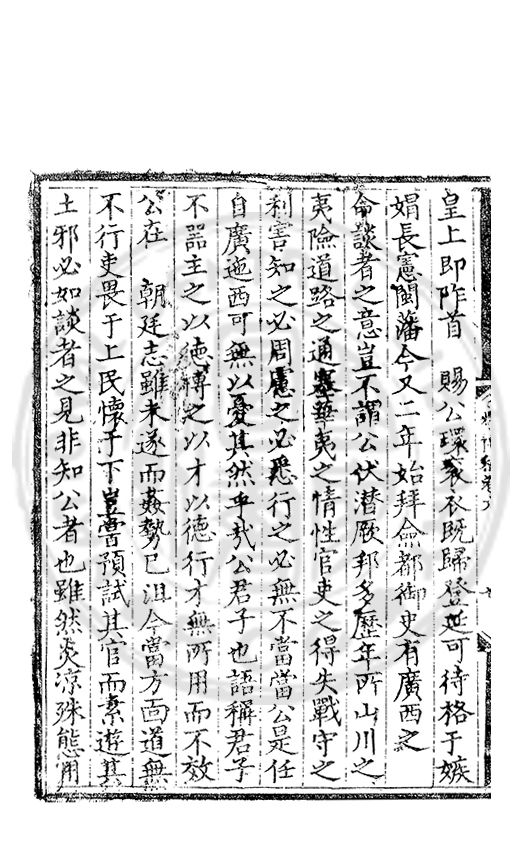 皇上即阼首　賜公環衮衣既歸登延可待格于嫉
娟長憲閩藩今又二年始拜僉都御史有廣西之
命談者之意豈不謂公伏潜厥邦多歷年所山川之
夷險道路之通塞華夷之情性官吏之得失戰守之
利害知之必周慮之必悉行之必無不當當公是任
自廣迤西可無以憂其然乎哉公君子也語稱君子
不器主之以德輔之以才以德行才無所用而不效
公在　朝廷志雖未遂而姦勢已沮今當方面道無
不行吏畏于上民懷于下豈嘗預試其官而素遊其
土邪必如談者之見非知公者也雖然炎涼殊態用